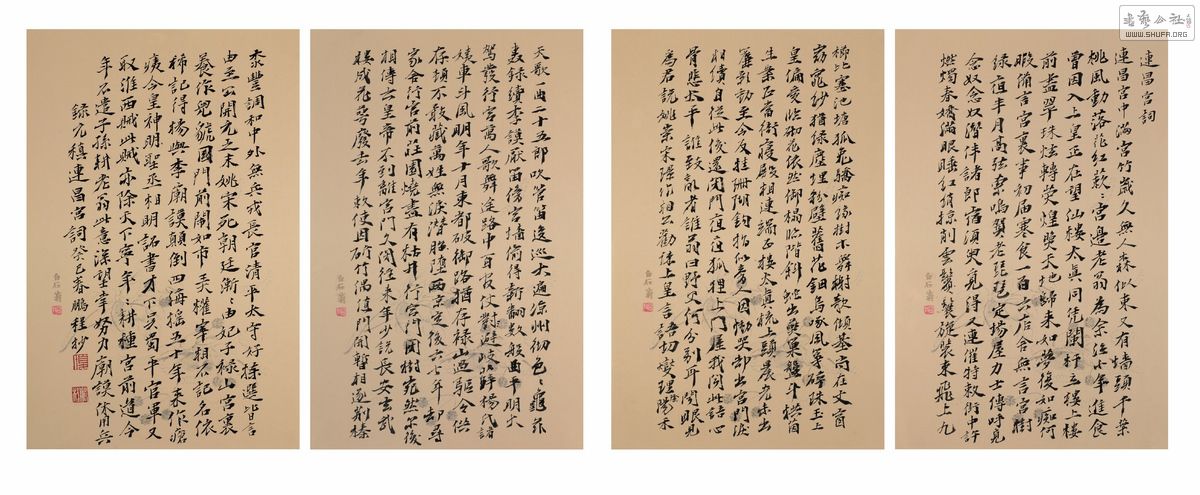 連昌宮詞
連昌宮中滿宮竹歲久無人森似束又有墻頭千葉
桃風動落花紅蔌〻宮邊老翁為余泣小年進食
曾因入上皇正在望仙樓太真同凭闌干立樓上樓
前盡翠珠炫轉熒煌天地歸來如夢復如癡何
暇備言宮裏事初屆寒食一百六店舍無宮樹
綠夜半月高弦索鳴賀老琵琶定場屋力士傳呼覓
念奴念奴潛伴諸郎宿須臾覓得又連催特敕街中許
燃燭春嬌滿眼睡紅綃掠削雲鬟旋裝束飛上九
櫛比塞池塘狐兔驕癡緣樹木舞榭欹傾基尚在文窗
窈窕紗猶綠塵埋粉壁舊花鈿鳥啄風箏碎珠玉上
皇偏愛臨砌花依然御榻臨階斜蛇出燕巢盤斗栱菌
生案正當衙寢殿相連端正樓太真梳上頭晨光未出
簾影動至今反挂珊瑚鉤指似旁人因慟哭卻出宮門淚
相續自從此後還閉門夜夜狐狸上門屋我聞此語心
骨悲太平誰致亂者誰翁曰野父何分別耳聞眼見
為君說姚崇宋璟作相公勸諫上皇言語切燮理陰陽禾
天歌曲二十五郎吹管笛逡巡大遍涼州徹色〻龜茲
轟錄續李謨擫笛傍宮墻偷得新翻數般曲平明大
駕發行宮萬人歌舞途路中百仗避岐薛楊氏諸
姨車斗風明年十月東都破御路猶存祿山過驅令供
存頓不敢藏萬姓無淚潛墮兩京定後六七年卻尋
家舍行宮前莊園燒盡有枯井行宮門閉樹宛然爾後
相傳六皇帝不到離宮門久閉往來年少說長安玄武
樓成花萼廢去年敕使因斫竹偶值門開暫相逐荊榛
黍豐調和中外無兵戎長官清平太守好揀選皆言
由至公開元之末姚宋死朝廷漸〻由妃子祿山宮裏
養作兒虢國門前鬧如市弄權宰相不記名依
稀記得楊與李廟謨顛倒四海搖五十年來作瘡
痍今皇神聖丞相明詔書才下吳蜀平官軍又
取淮西賊此賊亦除天下寧年年耕種宮前道今
年不遣子孫耕老翁此意深望幸努力廟謨休用兵
錄元稹連昌宮詞癸巳春鵬程抄
白石翁
白石翁
白石翁
WWW.SHUFA.ORG